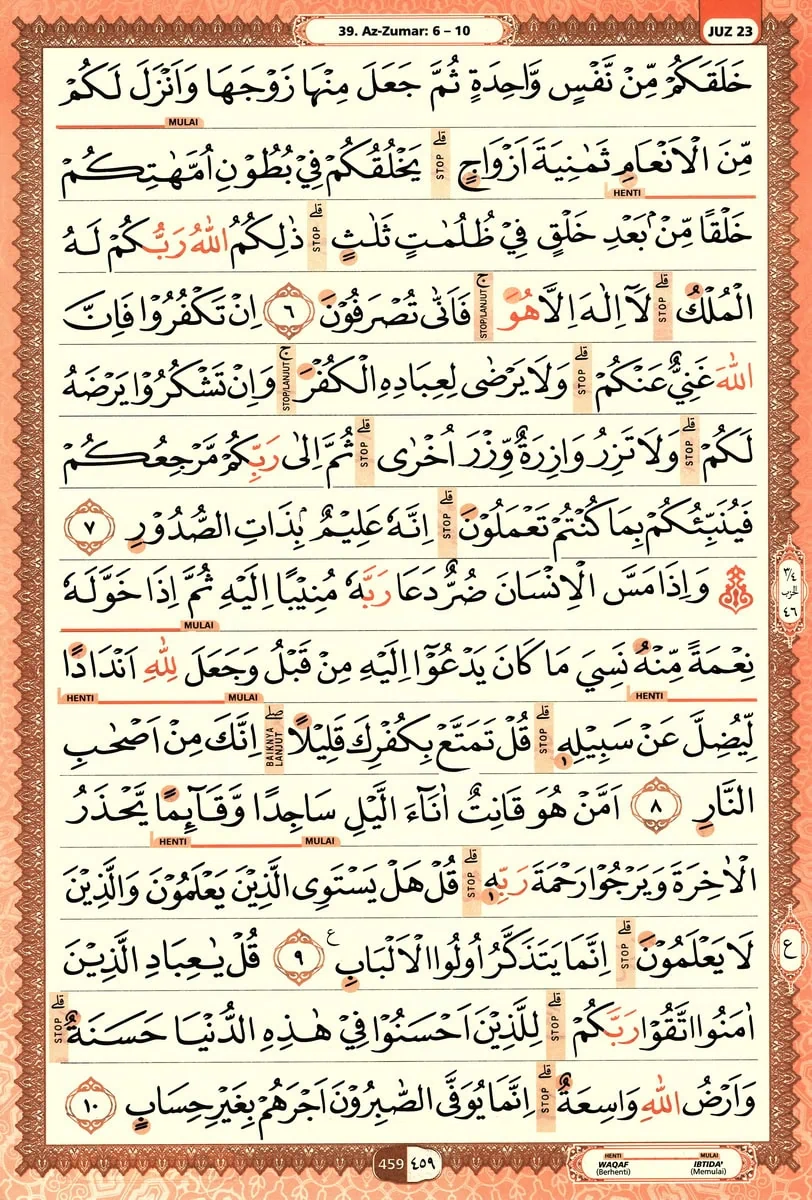 39. Az-Zumar: 6 – 10
JUZ 23
خَلَقَكُمْ مِّنْ نَّفْسٍ وَّاحِدَةٍ ثُمَّ جَعَلَ مِنْهَا زَوْجَهَا وَاَنْزَلَ لَكُمْ
MULAI
مِّنَ الْاَنْعَامِ ثَمٰنِيَةَ اَزْوَاجٍ ۗ STOP يَخْلُقُكُمْ فِيْ بُطُوْنِ اُمَّهٰتِكُمْ
HENTI
خَلْقًا مِّنْۢ بَعْدِ خَلْقٍ فِيْ ظُلُمٰتٍ ثَلٰثٍ ۗ STOP ذٰلِكُمُ اللّٰهُ رَبُّكُمْ لَهُ
الْمُلْكُ ۗ STOP لَآ اِلٰهَ اِلَّا هُوَ ۚ STOP/LANJUT فَاَنّٰى تُصْرَفُوْنَ ٦ اِنْ تَكْفُرُوْا فَاِنَّ
اللّٰهَ غَنِيٌّ عَنْكُمْ ۗ STOP وَلَا يَرْضٰى لِعِبَادِهِ الْكُفْرَ ۚ STOP/LANJUT وَاِنْ تَشْكُرُوْا يَرْضَهُ
لَكُمْ ۗ STOP وَلَا تَزِرُ وَازِرَةٌ وِّزْرَ اُخْرٰى ۗ STOP ثُمَّ اِلٰى رَبِّكُمْ مَّرْجِعُكُمْ
فَيُنَبِّئُكُمْ بِمَا كُنْتُمْ تَعْمَلُوْنَ ۗ STOP اِنَّهٗ عَلِيْمٌۢ بِذَاتِ الصُّدُوْرِ ٧
وَاِذَا مَسَّ الْاِنْسَانَ ضُرٌّ دَعَا رَبَّهٗ مُنِيْبًا اِلَيْهِ ثُمَّ اِذَا خَوَّلَهٗ
MULAI
نِعْمَةً مِّنْهُ نَسِيَ مَا كَانَ يَدْعُوْٓا اِلَيْهِ مِنْ قَبْلُ وَجَعَلَ لِلّٰهِ اَنْدَادًا
HENTI MULAI HENTI
لِّيُضِلَّ عَنْ سَبِيْلِهٖ ۗ STOP قُلْ تَمَتَّعْ بِكُفْرِكَ قَلِيْلًا ۖ BAIKNYA LANJUT اِنَّكَ مِنْ اَصْحٰبِ
النَّارِ ٨ اَمَّنْ هُوَ قَانِتٌ اٰنَاۤءَ الَّيْلِ سَاجِدًا وَّقَاۤىِٕمًا يَّحْذَرُ
MULAI HENTI
الْاٰخِرَةَ وَيَرْجُوْا رَحْمَةَ رَبِّهٖ ۗ STOP قُلْ هَلْ يَسْتَوِى الَّذِيْنَ يَعْلَمُوْنَ وَالَّذِيْنَ
لَا يَعْلَمُوْنَ ۗ STOP اِنَّمَا يَتَذَكَّرُ اُولُوا الْاَلْبَابِ ࣖ ٩ قُلْ يٰعِبَادِ الَّذِيْنَ
اٰمَنُوا اتَّقُوْا رَبَّكُمْ ۗ STOP لِلَّذِيْنَ اَحْسَنُوْا فِيْ هٰذِهِ الدُّنْيَا حَسَنَةٌ ۗ STOP
وَاَرْضُ اللّٰهِ وَاسِعَةٌ ۗ STOP اِنَّمَا يُوَفَّى الصّٰبِرُوْنَ اَجْرَهُمْ بِغَيْرِ حِسَابٍ ١٠
٣/٤
الحزب
٤٦
ع
459 ٤٥٩
HENTI
WAQAF
(Berhenti)
MULAI
IBTIDA'
(Memulai)